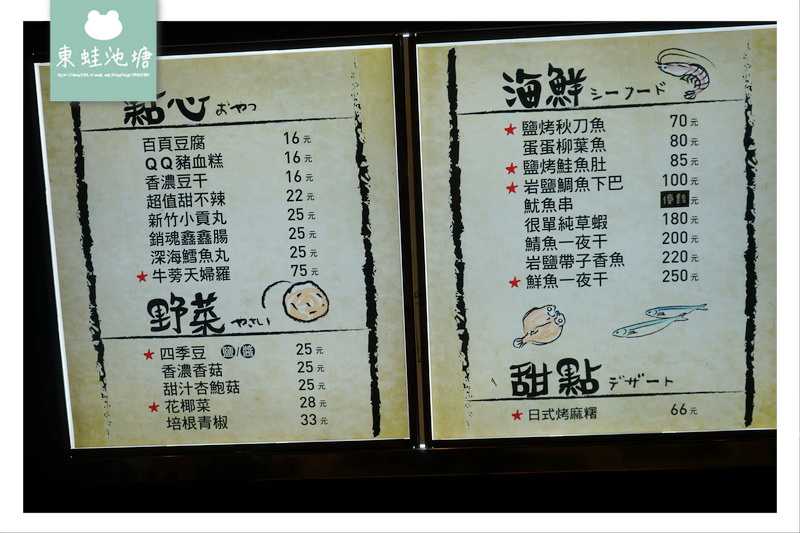 東蛙池塘
點心 おやつ
百頁豆腐 16元
QQ豬血糕 16元
香濃豆干 16元
超值甜不辣 22元
新竹小貢丸 25元
銷魂鑫鑫腸 25元
深海鱈魚丸 25元
★牛蒡天婦羅 75元
野菜 やさい
★四季豆 鹽/醬 25元
香濃香菇 25元
甜汁杏鮑菇 25元
★花椰菜 28元
培根青椒 33元
海鮮 シーフード
★鹽烤秋刀魚 70元
蛋蛋柳葉魚 80元
★鹽烤鮭魚肚 85元
★岩鹽鯛魚下巴 100元
魷魚串 元
很單純草蝦 180元
鯖魚一夜干 200元
岩鹽帶子香魚 220元
★鮮魚一夜干 250元
甜點 デザート
★日式烤麻糬 66元